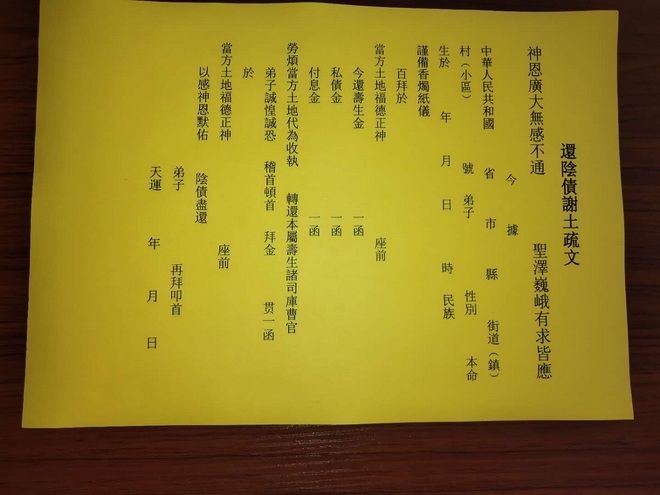 還陰債謝土疏文
神恩廣大無感不通 聖澤巍峨有求皆應
今據
中華人民共和國 省 市 縣 街道(鎮)
村(小區) 號 弟子 性別 本命
生於 年 月 日 時 民族
謹備香燭紙儀
百拜於
當方土地福德正神 座前
今還壽生金 一函
私債金 一函
付息金 一函
勞煩當方土地代為收執 轉還本屬壽生諸司庫曹官
弟子誠惶誠恐 稽首頓首 拜金 貫一函
於
當方土地福德正神 座前
以感神恩默佑 陰債盡還
弟子 再拜叩首
天運 年 月 日